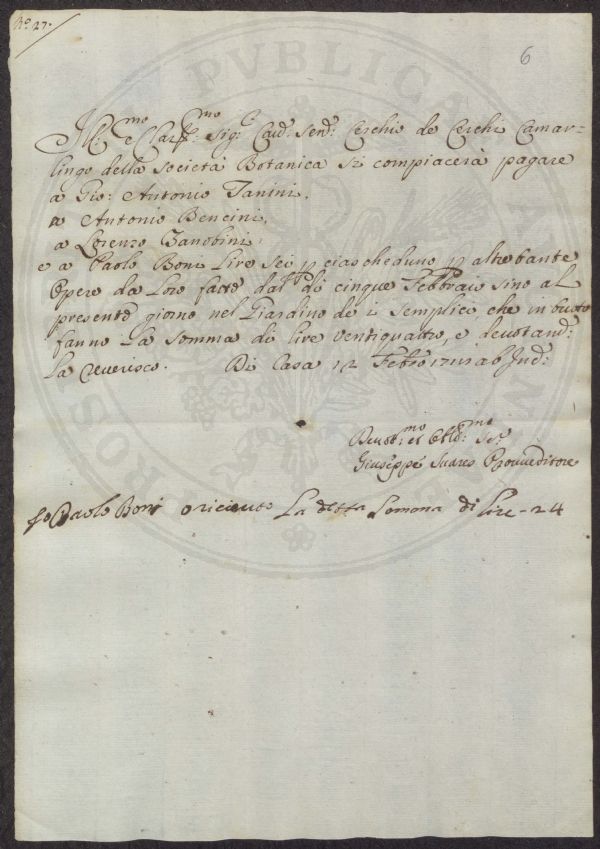 N.o 27.
6
Ill.mo e Clar.mo Sig.r Cav.r Sen.r Cerchio de Cerchi Camar-
lingo della Società Botanica si compiacerà pagare
a Gio: Antonio Tanini,
a Antonio Bencini,
a Lorenzo Zanobini,
e a Paolo Boni Lire Sei p ciascheduno p altrettante
Opere da Loro fatte dal dì cinque Febbraio sino al
presente giorno nel Giardino de i Semplici che in tutto
fanno La Somma di lire ventiquattro, e devotam:
La reverisco. Di Casa 12 Febb.o ab Ind:
Devot.mo et Obl.mo Se.r
Giuseppe Suares Provveditore
Io Paolo Boni o riceuto La detta Somma di Lire - 24
PVBLICA
PROSPERITA